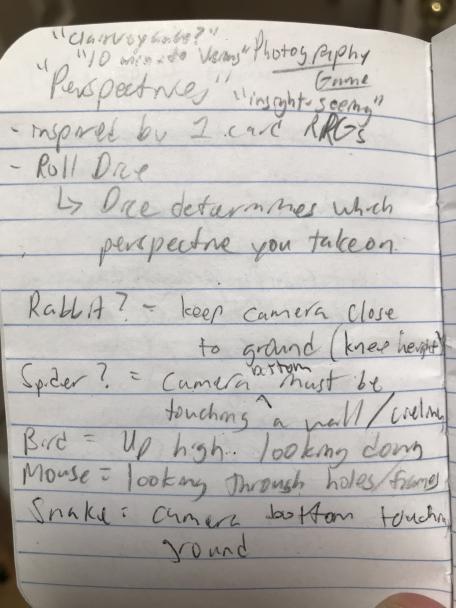 "Clairvoyance?"
"10 minute Versus" Photography
Game
"Perspectives" "insight-seeing"
- inspired by 1 card RPGs
- Roll Dice
↳ Dice determines which
perspective you take on.
Rabbit? - keep camera close
to ground (knee height)
Spider? = camera bottom must be
touching a wall/ceiling
Bird = Up high.. looking down
Mouse = looking through holes/frames
Snake = camera bottom touching
ground